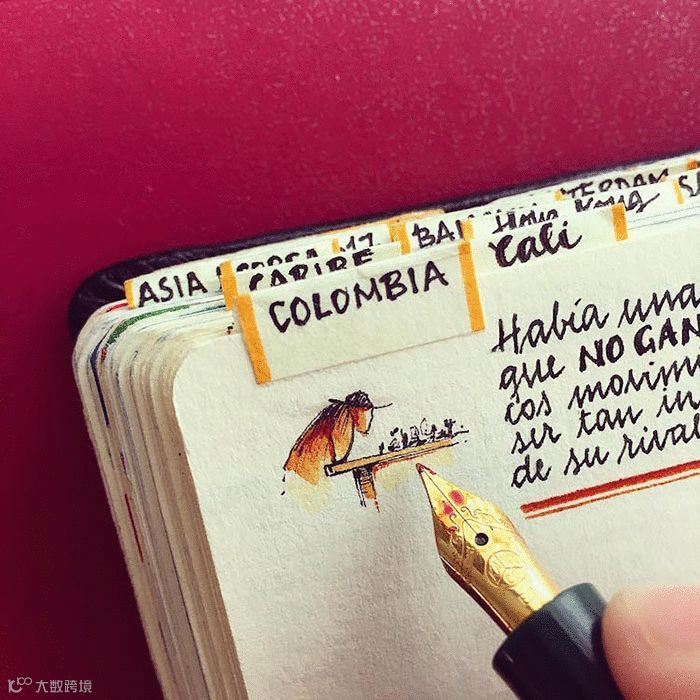 ASIA
CARIBE
COLOMBIA
Hong Kong
Cali
Había una
que NO GAN
cos movim
ser tan in
de su rival
大数跨境